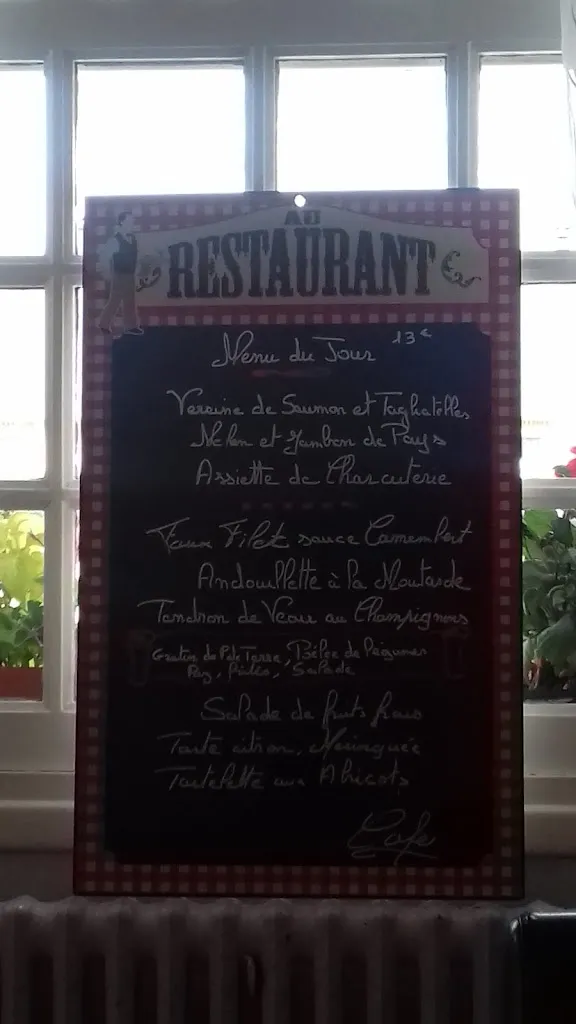 AU
RESTAURANT
Menu du Jour 13€
Verrine de Saumon et Tagliatelles
Melon et Jambon de Pays
Assiette de Charcuterie
Faux Filet sauce Camembert
Andouillette à la Moutarde
Tendron de Veau au Champignons
Gratin de P de Terre, de Légumes
Salade
Salade de fruits frais
Tarte citron, Meringuée
Tartelette aux Abricots
Cafe